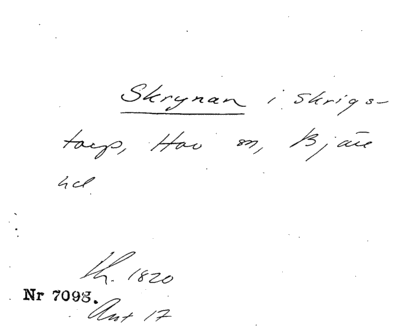 Skrynan i Skrigs-
torp, Hov sn, Bjäre
hd
th. 1820
Nr 7093.
Ant 17